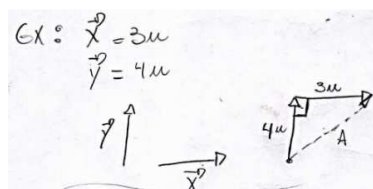 Ex: x⃗ = 3u
y⃗ = 4u
y⃗
x⃗
3u
4u
A